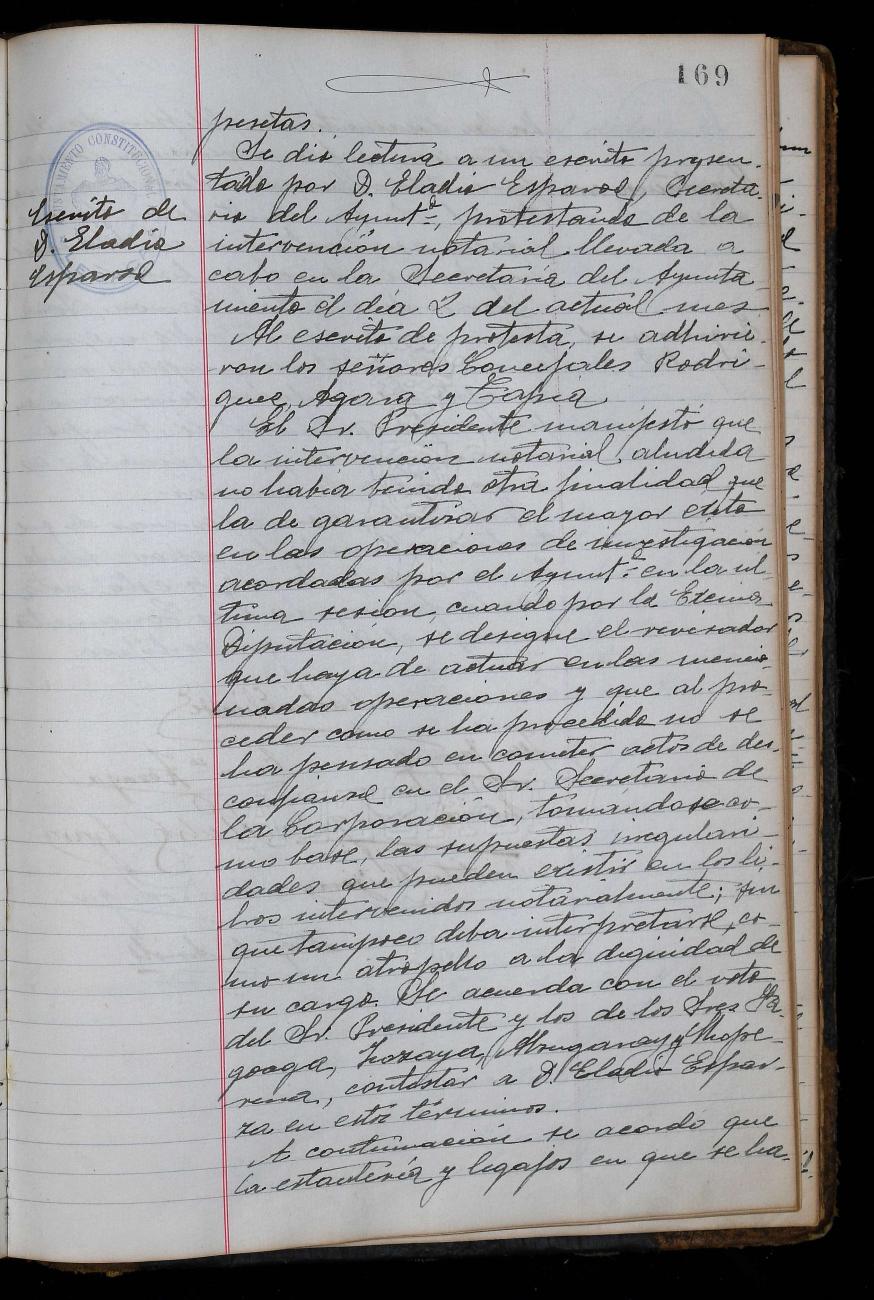 169
pesetas.
Se dió lectura a un escrito presen-
tado por D. Eladio Esparza, Secreta-
rio del Ayuntº, protestando de la
intervención notarial llevada a
cabo en la Secretaria del Ayunta-
miento el día 2 del actual mes
Al escrito de protesta, se adhirie-
ron los señores Concejales Rodri-
guez, Agara y Tapia
El Sr. Presidente manifestó que
la intervención notarial aludida
no habia tenido otra finalidad que
la de garantizar el mayor exito
en las operaciones de investigación
acordadas por el Ayuntº en la úl-
tima sesion, cuando por la Excma
Diputación, se designe el revisador
que haya de actuar en las mencio-
nadas operaciones y que al pro-
ceder como se ha procedido no se
ha pensado en cometer actos de des-
confianza en el Sr. Secretario de
la Corporación, tomándose co-
mo base, las supuestas irregulari-
dades que pueden existir en los li-
bros intervenidos notarialmente; sin
que tampoco deba interpretarse, co-
mo un atropello a la dignidad de
su cargo. Se acuerda con el voto
del Sr. Presidente y los de los Sres
Zozaya, y
contestar a D. Eladio Espar-
za en estos términos.
A continuación se acordó que
la estantería y legajos en que se ha-
AYUNTAMIENTO CONSTITUCIONAL
Escrito de
D. Eladio
Esparza